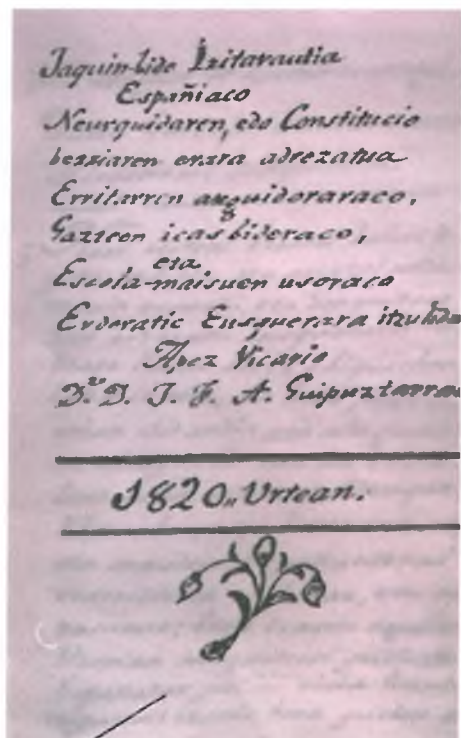 Jaquin-bide Izitarautia
Españiaco
Neurquidaren, edo Constitucio
berriaren erara adrezatua
Erritarren arguidoraraco,
Gazteen icasbideraco,
eta
Escola-maisuen usoraco
Erderatic Eusquerara
Apez Vicario
D.ⁿ D. J. F. A. Guipuztarrac
1820,, Urtean.